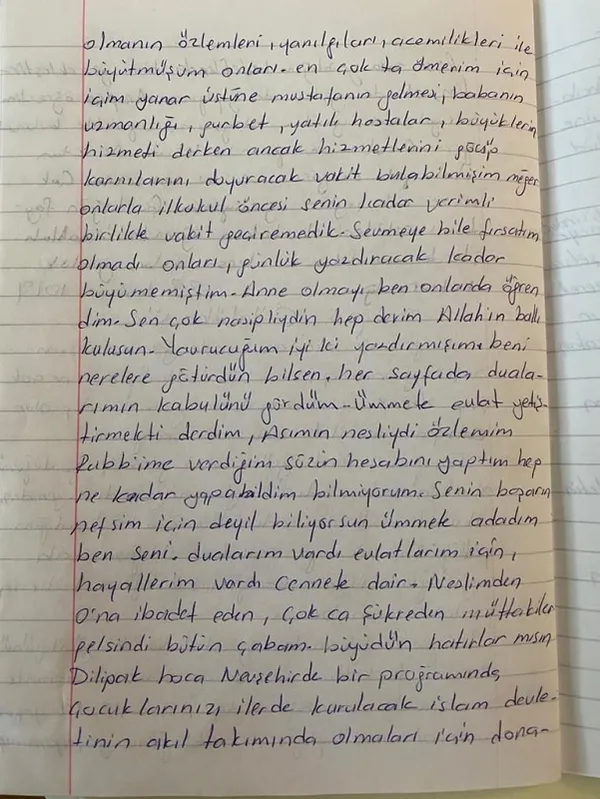 olmanın özlemleri, yanılgıları, acemilikleri ile
büyütmüşüm onları. en çok ta Ömerim için
içim yanar üstüne mustafanın gelmesi, babanın
uzmanlığı, gurbet, yatılı hastalar, büyüklerin
hizmeti derken ancak hizmetlerini görüp
karnılarını doyuracak vakit bulabilmişim meğer
onlarla ilkokul öncesi senin kadar verimli
birlikte vakit geçiremedik. Sevmeye bile fırsatım
olmadı onları, günlük yazdıracak kadar
büyümemiştim. Anne olmayı ben onlarda öğren
dim. Sen çok nasipliydin hep derim Allah'ın ballı
kulusun. Yavrucuğum iyi ki yazdırmışım. beni
nerelere götürdün bilsen. her sayfada duala-
rımın kabulünü gördüm. Ümmete evlat yetiş-
tirmekti derdim, Asımın nesliydi özlemim
Rabb'ime verdiğim sözün hesabını yaptım hep
ne kadar yapabildim bilmiyorum. Senin başarın
nefsim için deyil biliyorsun ümmete adadım
ben seni. dualarım vardı evlatlarım için,
hayallerim vardı Cennete dair. Neslimden
O'na ibadet eden, çok ca şükreden müttakiler
gelsindi bütün çabam. büyüdün hatırlar mısın
Dilipak hoca Nevşehirde bir programında
Çocuklarınızı ilerde kurulacak islam devle-
tinin akıl takımında olmaları için dona-